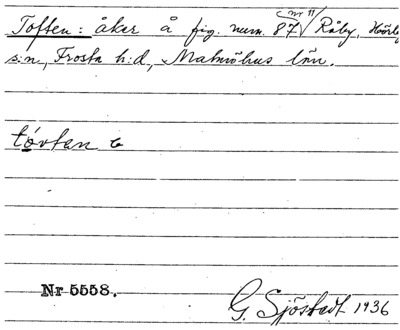 Toften: åker å fig. num. 87 Råby, Hörby
s:n, Frosta h:d, Malmöhus län.
tóvtan
Nr 5558.
G. Sjöstedt 1936